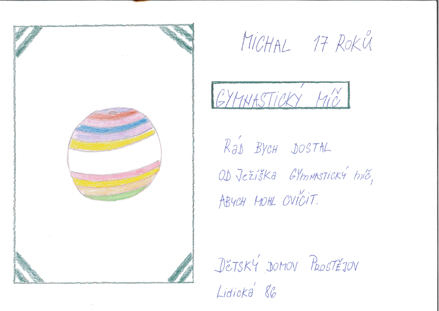 MICHAL 17 ROKŮ
GYMNASTICKÝ MÍČ
RÁD BYCH DOSTAL
OD JEŽÍŠKA GYMNASTICKÝ MÍČ,
ABYCH MOHL CVIČIT.
DĚTSKÝ DOMOV PROSTĚJOV
Lidická 86